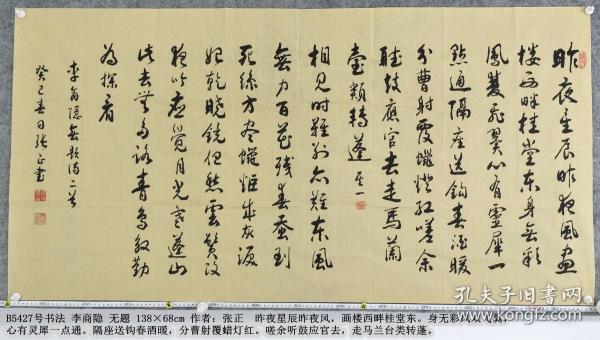 昨夜星辰昨夜風畫
楼西畔桂堂东身無彩
鳳雙飛翼心有靈犀一
點通隔座送鈎春酒暖
分曹射覆蠟燈红嗟余
聽鼓應官去走馬蘭
臺類轉蓬 其一
相見時難别亦難东風
無力百花残春蚕到
死絲方尽蠟炬成灰淚
始乾曉鏡但愁雲鬓改
夜吟應覺月光寒蓬山
此去無多路青鳥殷勤
為探看
李商隐無题诗二首
癸巳春日張正書
B5427号书法 李商隐 无题 138×68cm 作者：张正 昨夜星辰昨夜风，画楼西畔桂堂东。身无彩凤双飞翼，
心有灵犀一点通。隔座送钩春酒暖，分曹射覆蜡灯红。嗟余听鼓应官去，走马兰台类转蓬。